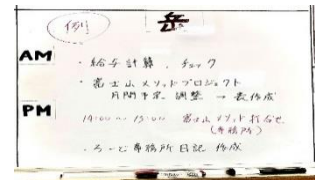 (例)
岳
AM
・給与計算、チェック
・富士山メソッドプロジェクト
月間予定 調整 → 表作成
PM
14:00〜15:00 富士山メソッド打合せ
(事務所)
・ろーど事務所日記 作成